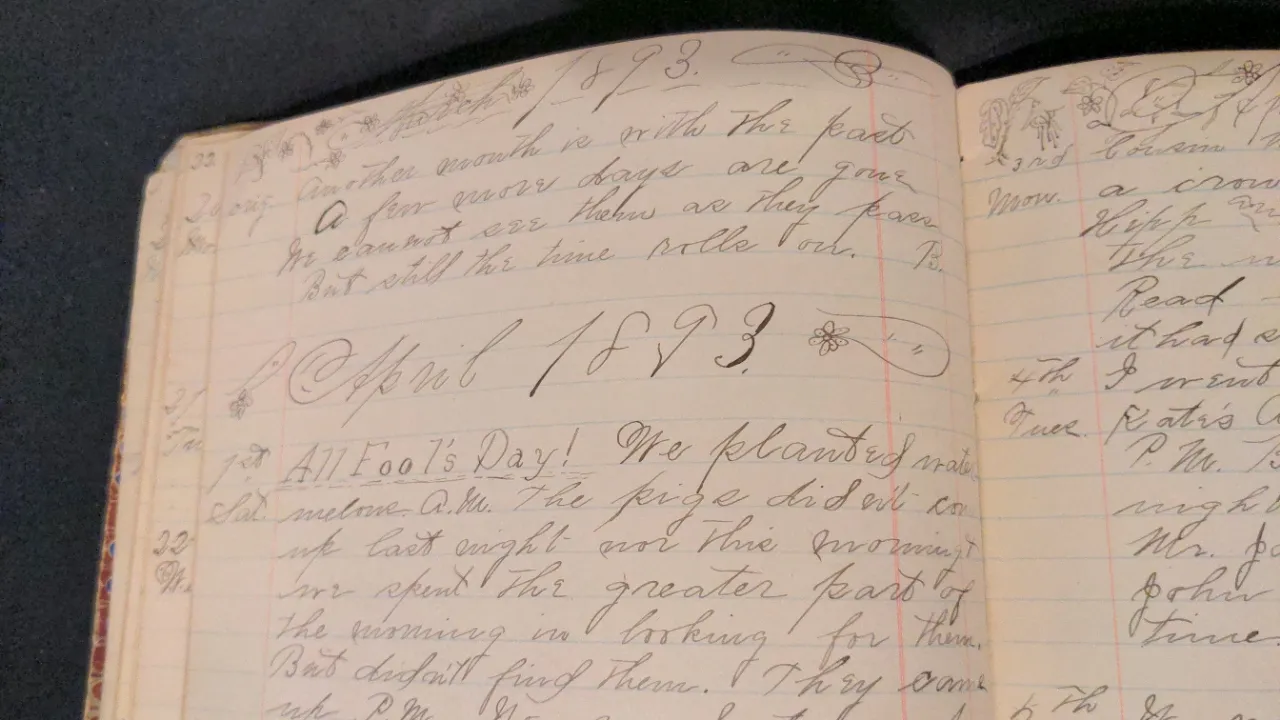 March 1893.
Another month is with the past
A few more days are gone
We cannot see them as they pass
But still the time rolls on. B.
April 1893.
1st All Fool's Day! We planted water
Sat. melons A.M. The pigs did n't come
up last night nor this morning &
we spent the greater part of
the morning in looking for them.
But didn't find them. They came
up P.M.
3rd Cousin
Mon. a crow
Hipp
The
Read
it had s
4th I went
Tues. Kate's
P.M.
night
Mr.
John
time.
5th
22
21
22
W.